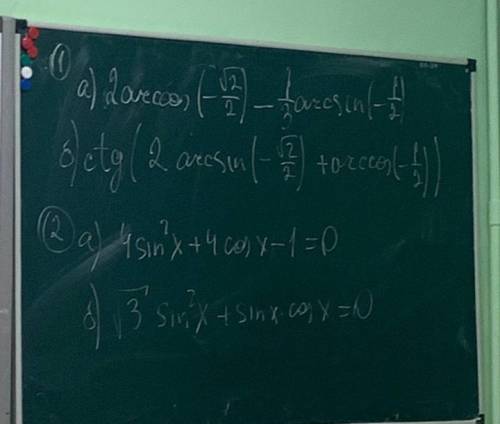 ① а) 2 arccos(-√2/2) - 1/3 arcsin(-1/2)
б) ctg(2 arcsin(-√2/2) + arccos(-1/2))
② а) 4 sin²x + 4 cos x - 1 = 0
б) √3 sin²x + sin x · cos x = 0